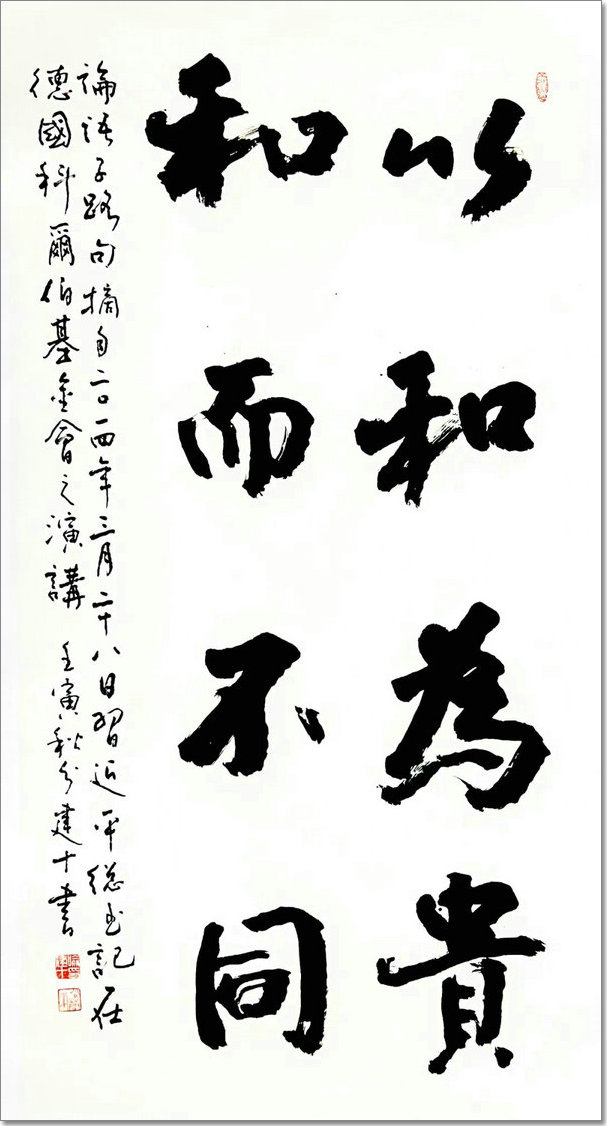 以和為貴
和而不同
論語子路句摘自二〇一四年三月二十八日習近平總書記在
德國科爾伯基金會之演講 壬寅秋分建十書